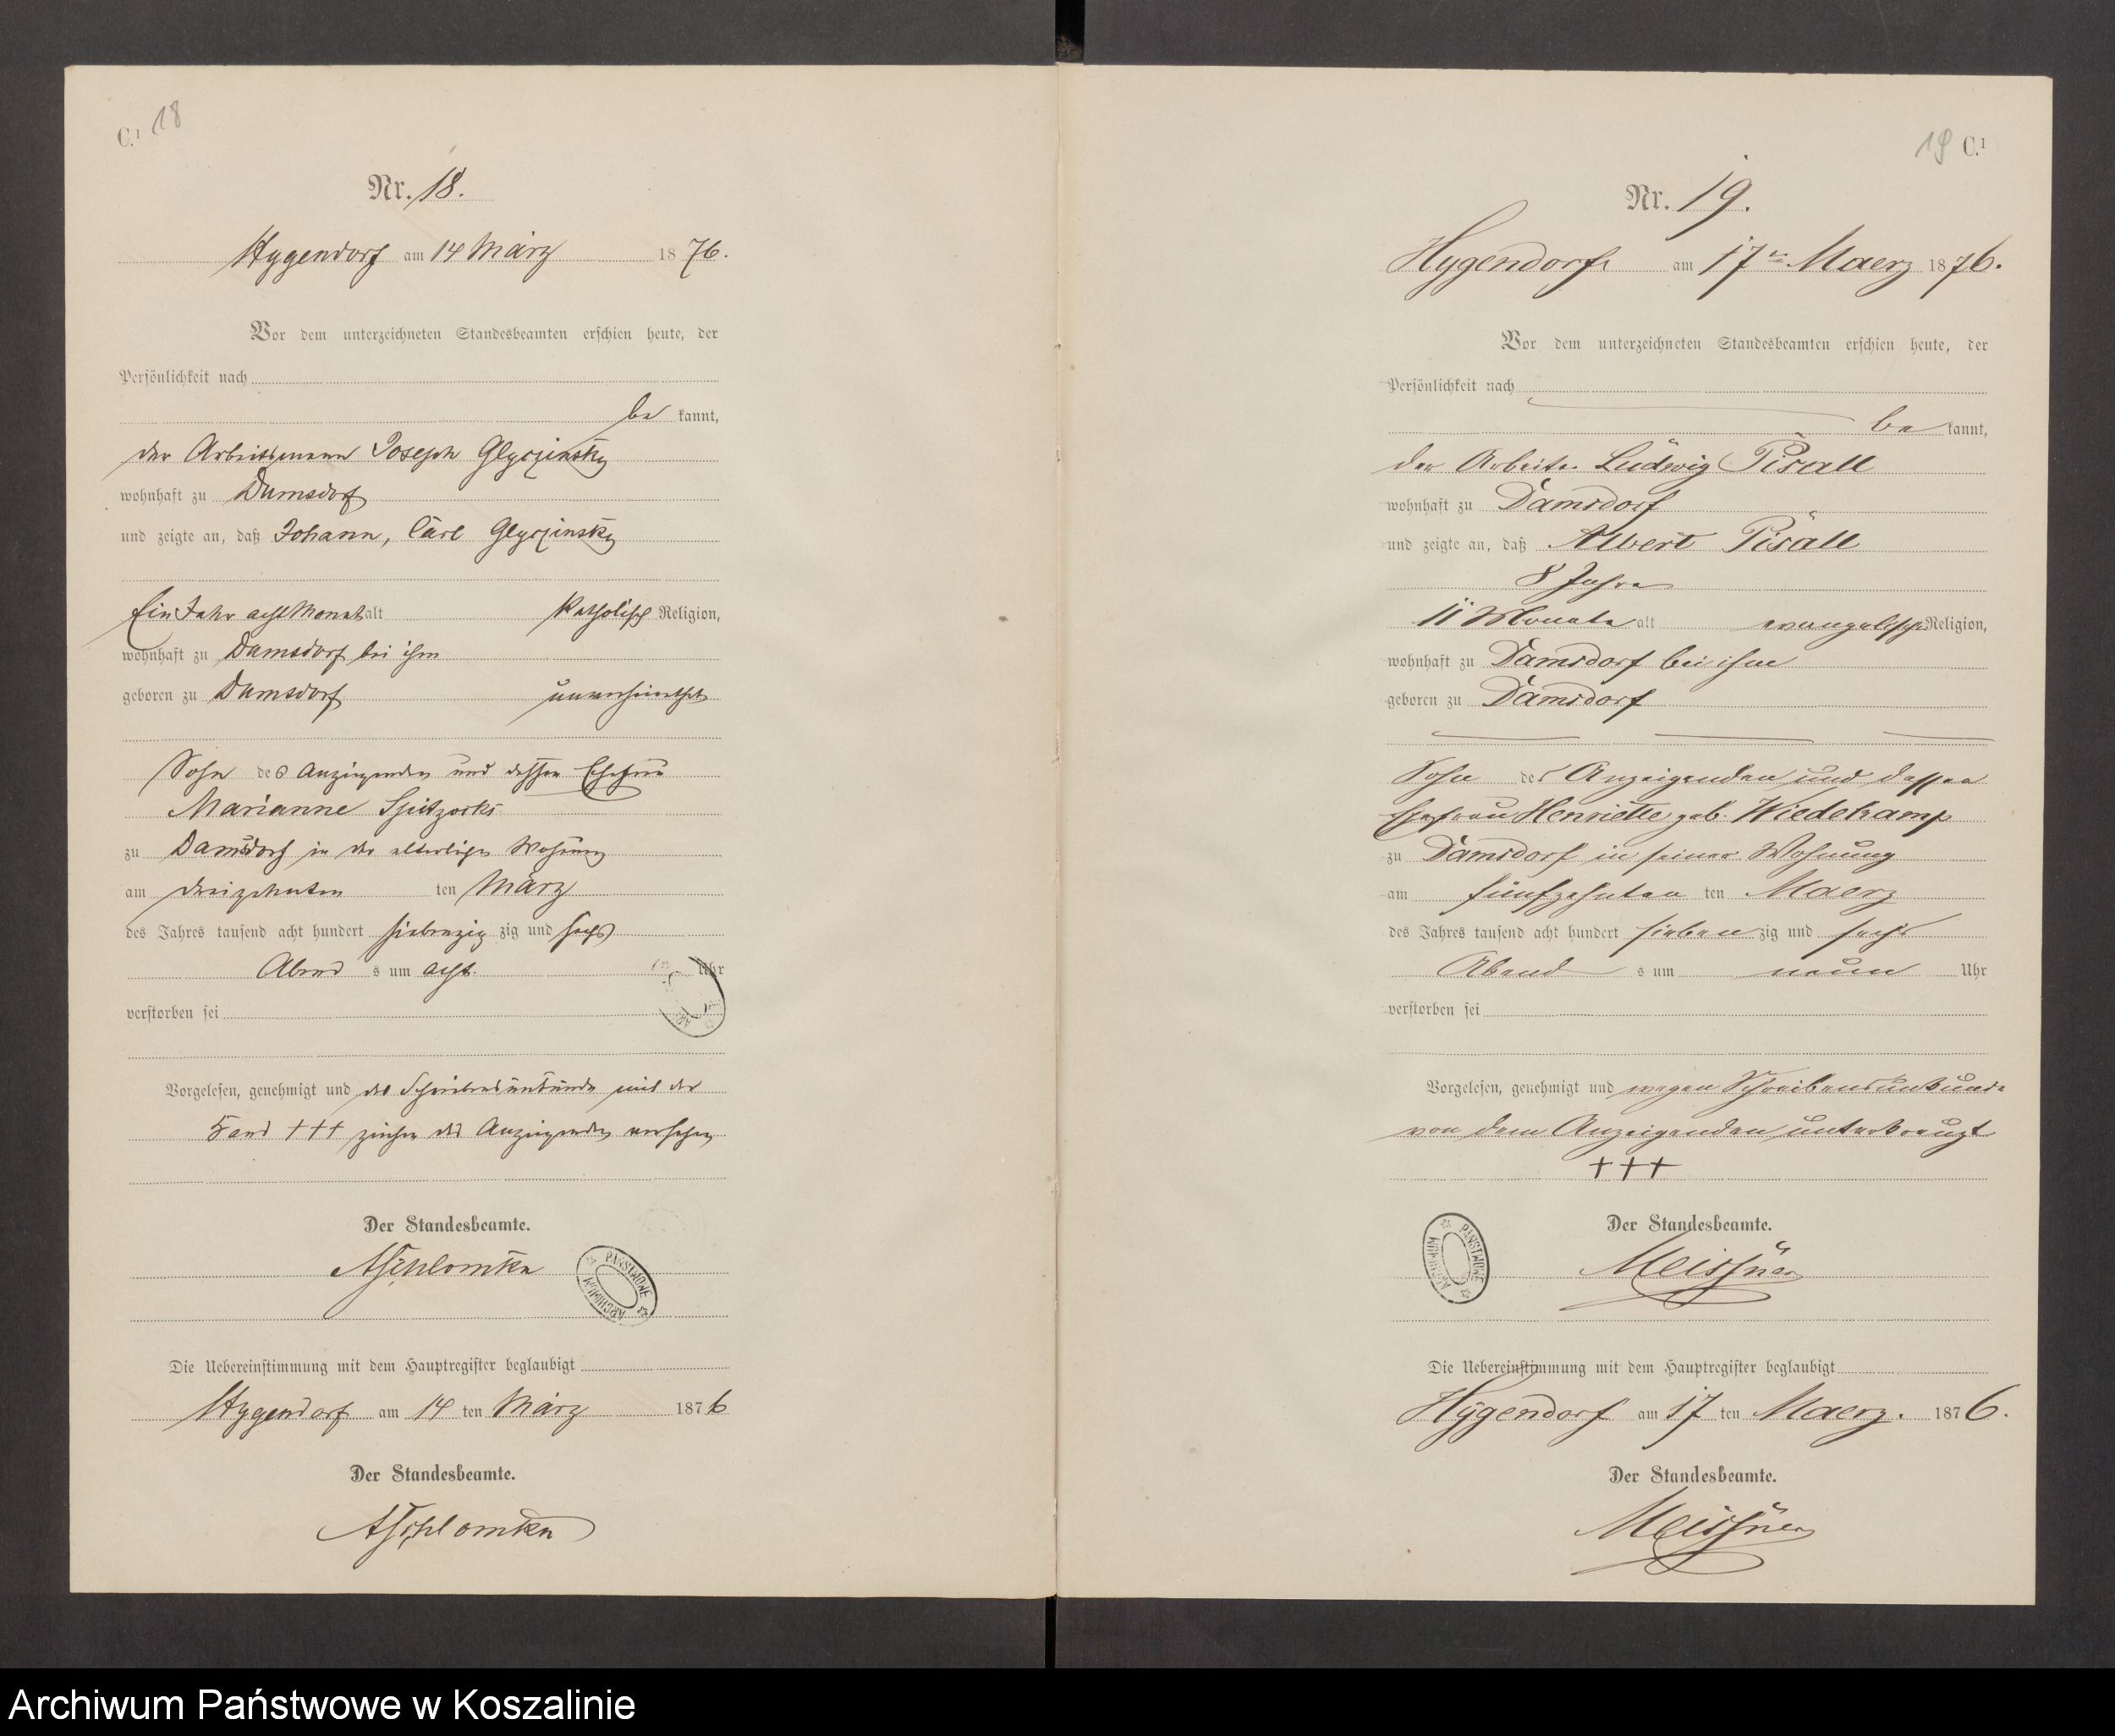 C.1 18
Nr. 18.
Hygendorf am 14 März 1876.
Vor dem unterzeichneten Standesbeamten erschien heute, der
Persönlichkeit nach
be kannt,
der Arbeitsmann Joseph Glyszinsky
wohnhaft zu Damsdorf
und zeigte an, daß Johann, Carl Glyszinsky
Ein Jahr acht Monat alt Katholisch Religion,
wohnhaft zu Damsdorf bei ihm
geboren zu Damsdorf unverheirathet
Sohn des Anzeigenden und dessen Ehefrau
Marianne
zu Damsdorf in der elterlichen Wohnung
am dreizehnten ten März
des Jahres tausend acht hundert siebenzig zig und sechs
Abend s um acht Uhr
verstorben sei
Vorgelesen, genehmigt und des Schreibensunkunde mit der
Hand +++ zeichen des Anzeigenden versehen
Der Standesbeamte.
PANSTWOWE ARCHIWUM
Die Uebereinstimmung mit dem Hauptregister beglaubigt
Hygendorf am 14 ten März 1876
Der Standesbeamte.
19 C.1
Nr. 19.
Hygendorf am 17ten Maerz 1876.
Vor dem unterzeichneten Standesbeamten erschien heute, der
Persönlichkeit nach
be kannt,
der Arbeiter Ludwig Pisall
wohnhaft zu Damsdorf
und zeigte an, daß Albert Pisall
8 Jahre
11 Monate alt evangelischer Religion,
wohnhaft zu Damsdorf bei ihm
geboren zu Damsdorf
Sohn des Anzeigenden und dessen
Ehefrau Henriette geb. Wiedekamp
zu Damsdorf in seiner Wohnung
am fünfzehnten ten Maerz
des Jahres tausend acht hundert sieben zig und sechs
Abend s um neun Uhr
verstorben sei
Vorgelesen, genehmigt und wegen Schreibensunkunde
von dem Anzeigenden unterkreuzt
+++
Der Standesbeamte.
Meissner
PANSTWOWE ARCHIWUM
Die Uebereinstimmung mit dem Hauptregister beglaubigt
Hygendorf am 17 ten Maerz. 1876.
Der Standesbeamte.
Meissner
Archiwum Państwowe w Koszalinie